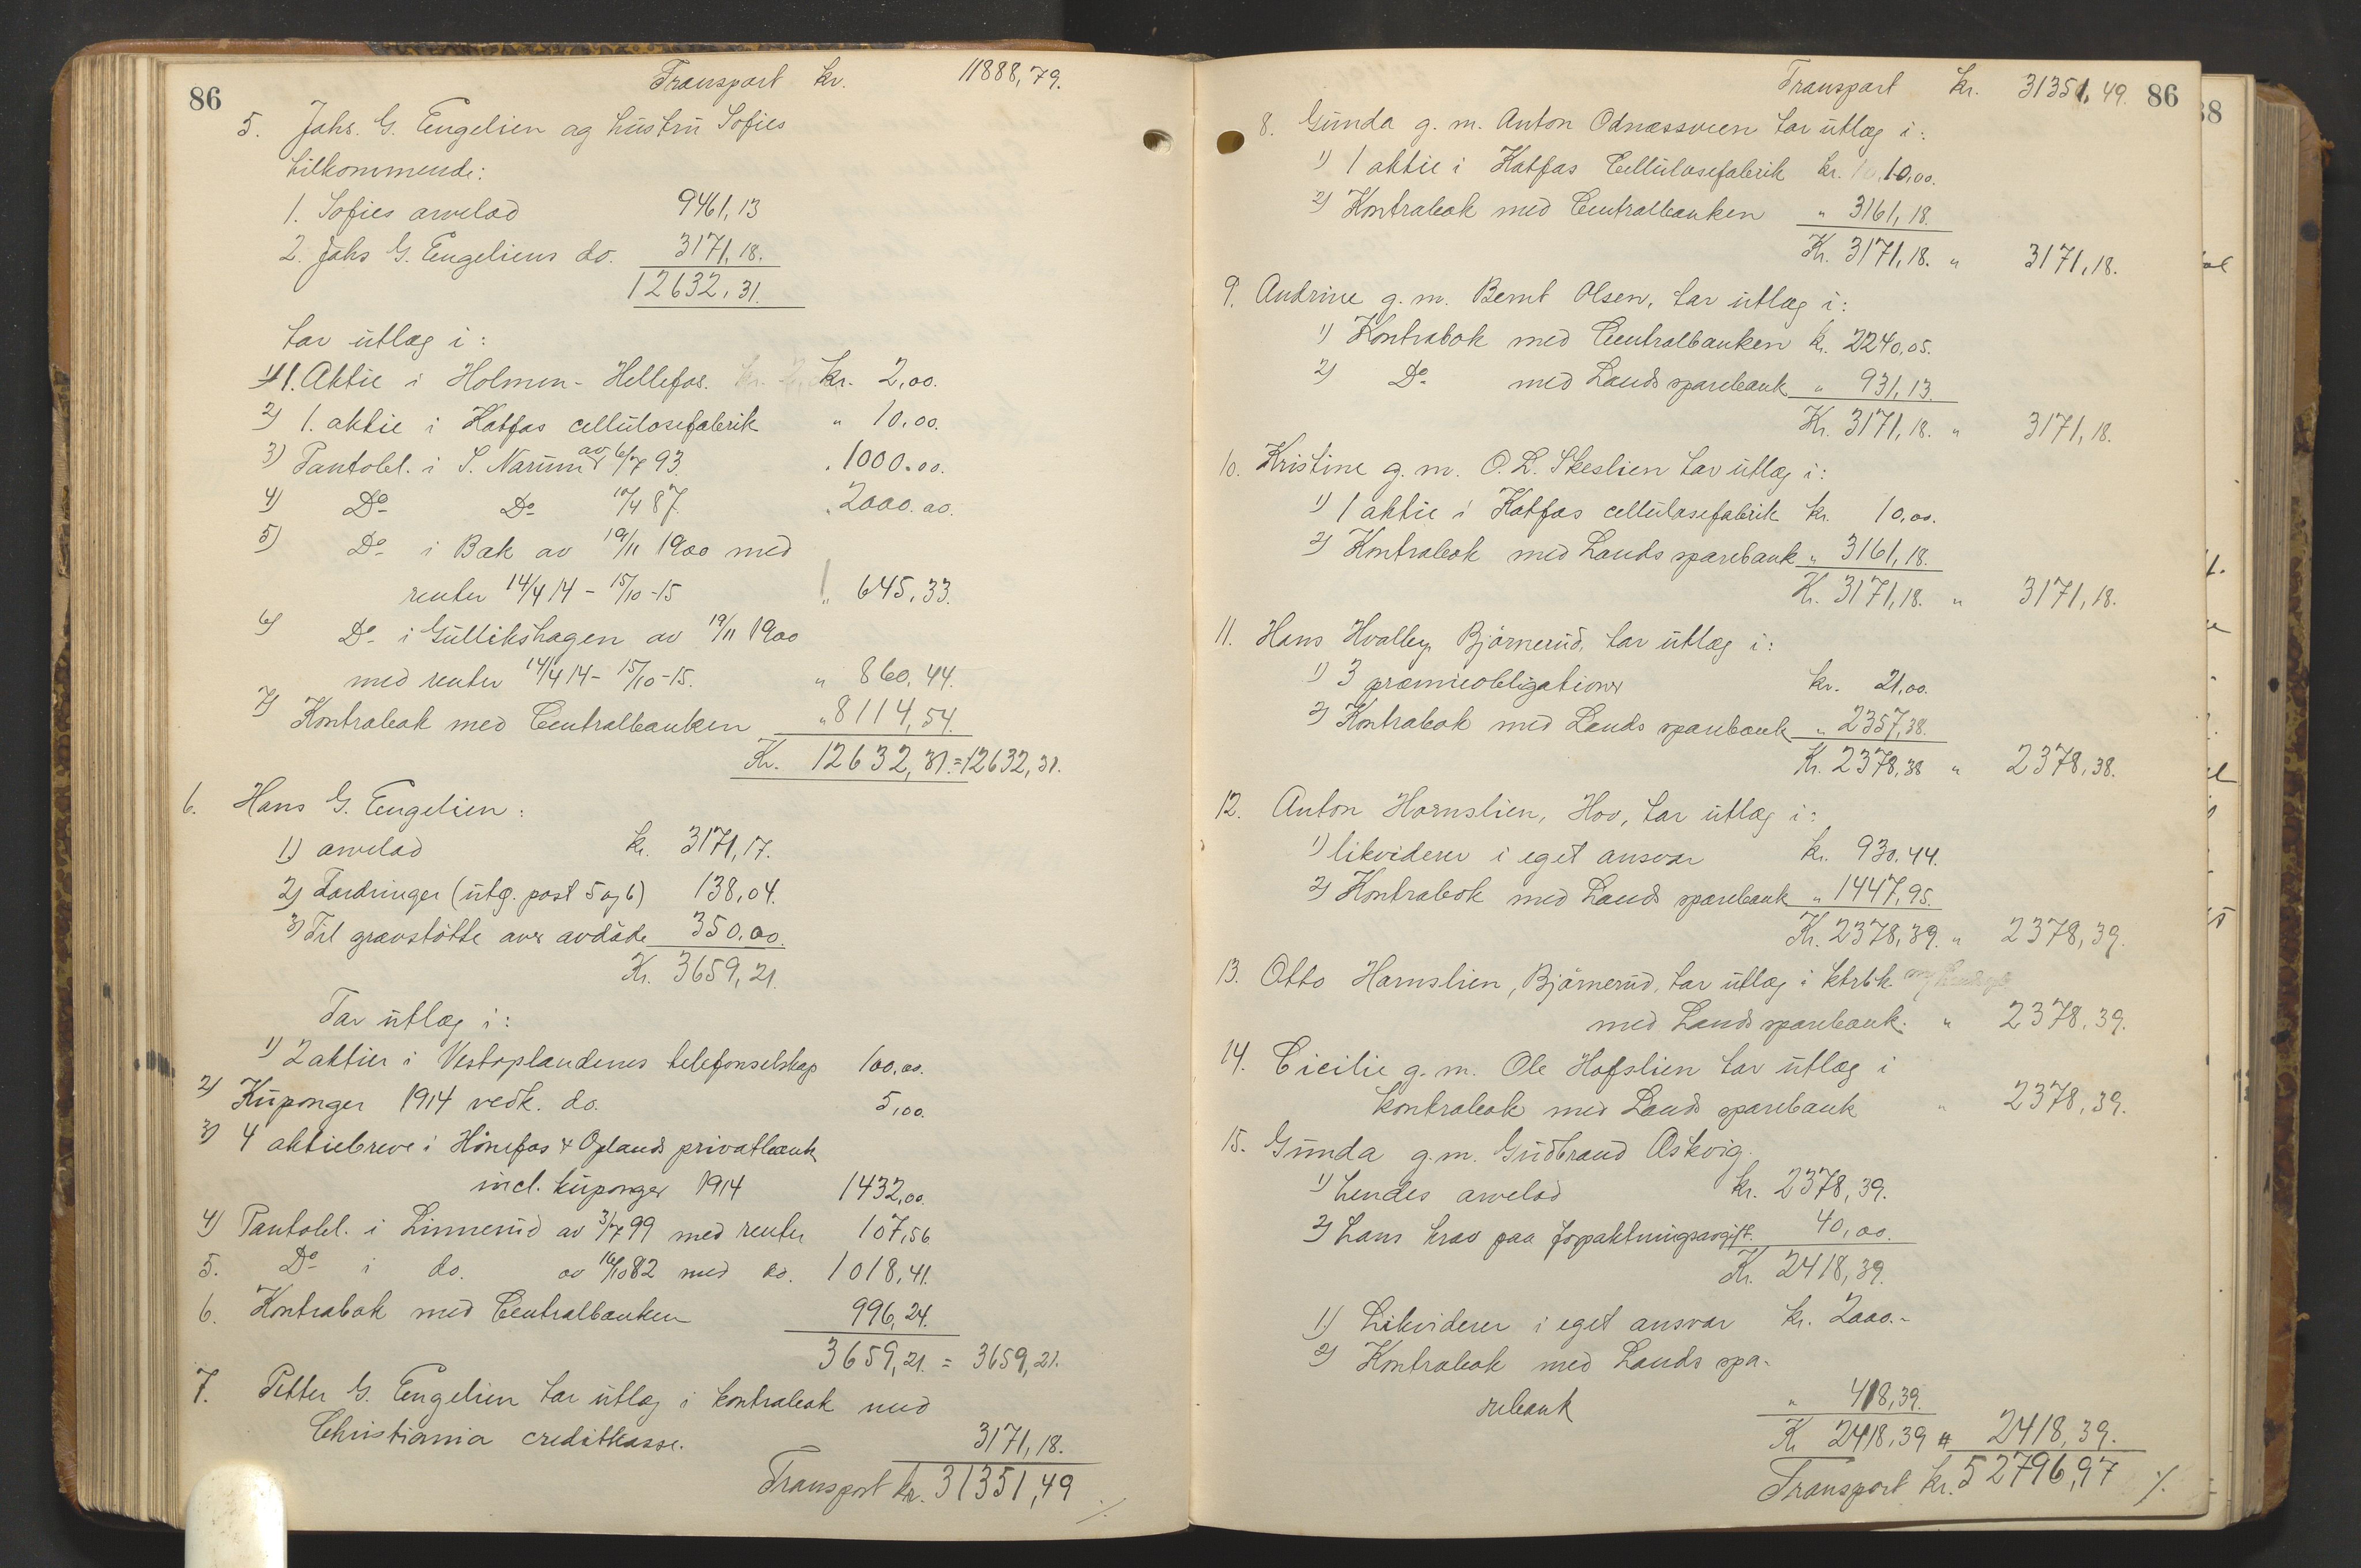 86
Transport kr. 11888,79.
5. Johs. G. Engelien og hustru Sofies
tilkommende:
1. Sofies arvelod 9461,13
2. Johs G. Engeliens do. 3171,18.
12632,31.
tar utlæg i:
1) 1. Aktie i Holmen-Hellefos. kr. 2,00.
2) 1. aktie i Katfas cellulosefabrik " 10,00.
3) Pantobl. i S. Narum av 6/7 93. " 1000.00.
4) Do Do 17/4 87. " 2000.00.
5) Do i Bak av 19/11 1900 med
renter 14/4 14 - 15/10 -15 " 645,33.
6) Do i Gullikshagen av 19/11 1900
med renter 14/4 14 - 15/10 -15. " 860,44.
7) Kontrabok med Centralbanken " 8114,54.
Kr. 12632,31. = 12632,31.
6. Hans G. Engelien:
1) arvelod kr. 3171,17.
2) Fordringer (utg. post 5 og 6) 138,04.
3) Til gravstøtte over avdøde 350,00.
Kr. 3659,21.
Tar utlæg i:
1) 2 aktier i Vestoplandenes telefonselskap 100,00.
2) Kuponger 1914 vedk. do. 5,00.
3) 4 aktiebreve i Hönefos & Oplands privatbank
incl. kuponger 1914 1432,00.
4) Pantobl. i Linnerud av 3/7 99 med renter 107,56
5. Do i do. av 16/10 82 med do. 1018,41.
6. Kontrabok med Centralbanken 996,24.
3659,21. = 3659,21.
7. Petter G. Engelien tar utlæg i kontrabok med
Christiania creditkasse. 3171,18.
Transport kr. 31351,49 ./.
Transport kr. 31351,49. 86
8. Gunda g. m. Anton Odnæssveen tar utlæg i:
1) 1 aktie i Katfas Cellulosefabrik kr. 10,00.
2) Kontrabok med Centralbanken " 3161,18.
Kr. 3171,18. " 3171,18.
9. Andrine g. m. Bernt Olsen, tar utlæg i:
1) Kontrabok med Centralbanken kr. 2240,05.
2) Do med Lands sparebank " 931,13.
Kr. 3171,18. " 3171,18.
10. Kristine g. m. O. L. Skeslien tar utlæg i:
1) 1 aktie i Katfas cellulosefabrik kr. 10,00.
2) Kontrabok med Lands sparebank " 3161,18.
Kr. 3171,18. " 3171,18.
11. Hans Hvalby, Bjørnerud, tar utlæg i:
1) 3 præmieobligationer kr. 21,00.
2) Kontrabok med Lands sparebank " 2357,38.
Kr. 2378,38 " 2378,38.
12. Anton Hornslien, Hov, tar utlæg i:
1) likviderer i eget ansvar kr. 930.44.
2) Kontrabok med Lands sparebank " 1447,95.
Kr. 2378,39. " 2378,39.
13. Otto Hornslien, Bjørnerud, tar utlæg i ktrbk.
med Lands sparebank. " 2378,39.
14. Cicilie g. m. Ole Hofslien tar utlæg i
kontrabok med Lands sparebank " 2378,39.
15. Gunda g.m. Gudbrand Askvig.
1) hendes arvelod kr. 2378,39.
2) hans krav paa forpaktningsavgift. 40,00.
Kr. 2418,39.
1) Likviderer i eget ansvar kr. 2000.-
2) Kontrabok med Lands spa-
rebank " 418,39.
Kr 2418,39 " 2418,39.
Transport kr. 52796,97 ./.